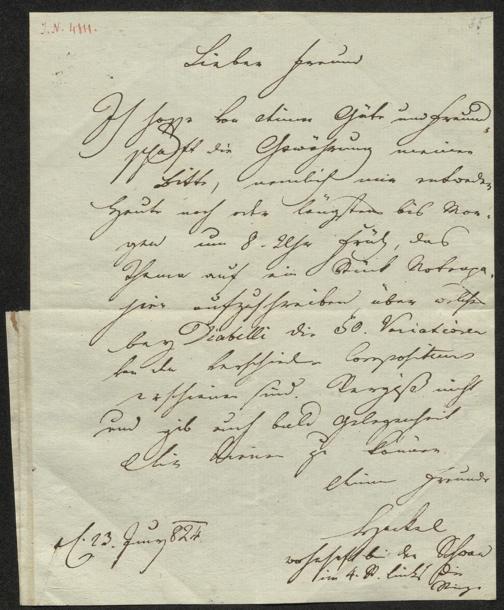 I.N. 4111.
35
Lieber Freund
Ich hoffe von deiner Güte und Freund-
schaft die Gewährung meiner
Bitte, nemlich mir entweder
Heute noch oder längstens bis Mor-
gen um 8. Uhr Früh, das
Thema auf ein Stück Notenpa-
pier aufzuschreiben über welches
bey Diabelli die 50. Variationen
von den verschied. Compositeurs
erschienen sind. Vergiß nicht
und gib auch bald Gelegenheit
Dir dienen zu können.
Deinem Freunde
Haekel
d. 23. Juny 824
wohnhaft bei der Schwan
im 4. St. links die
Stiege